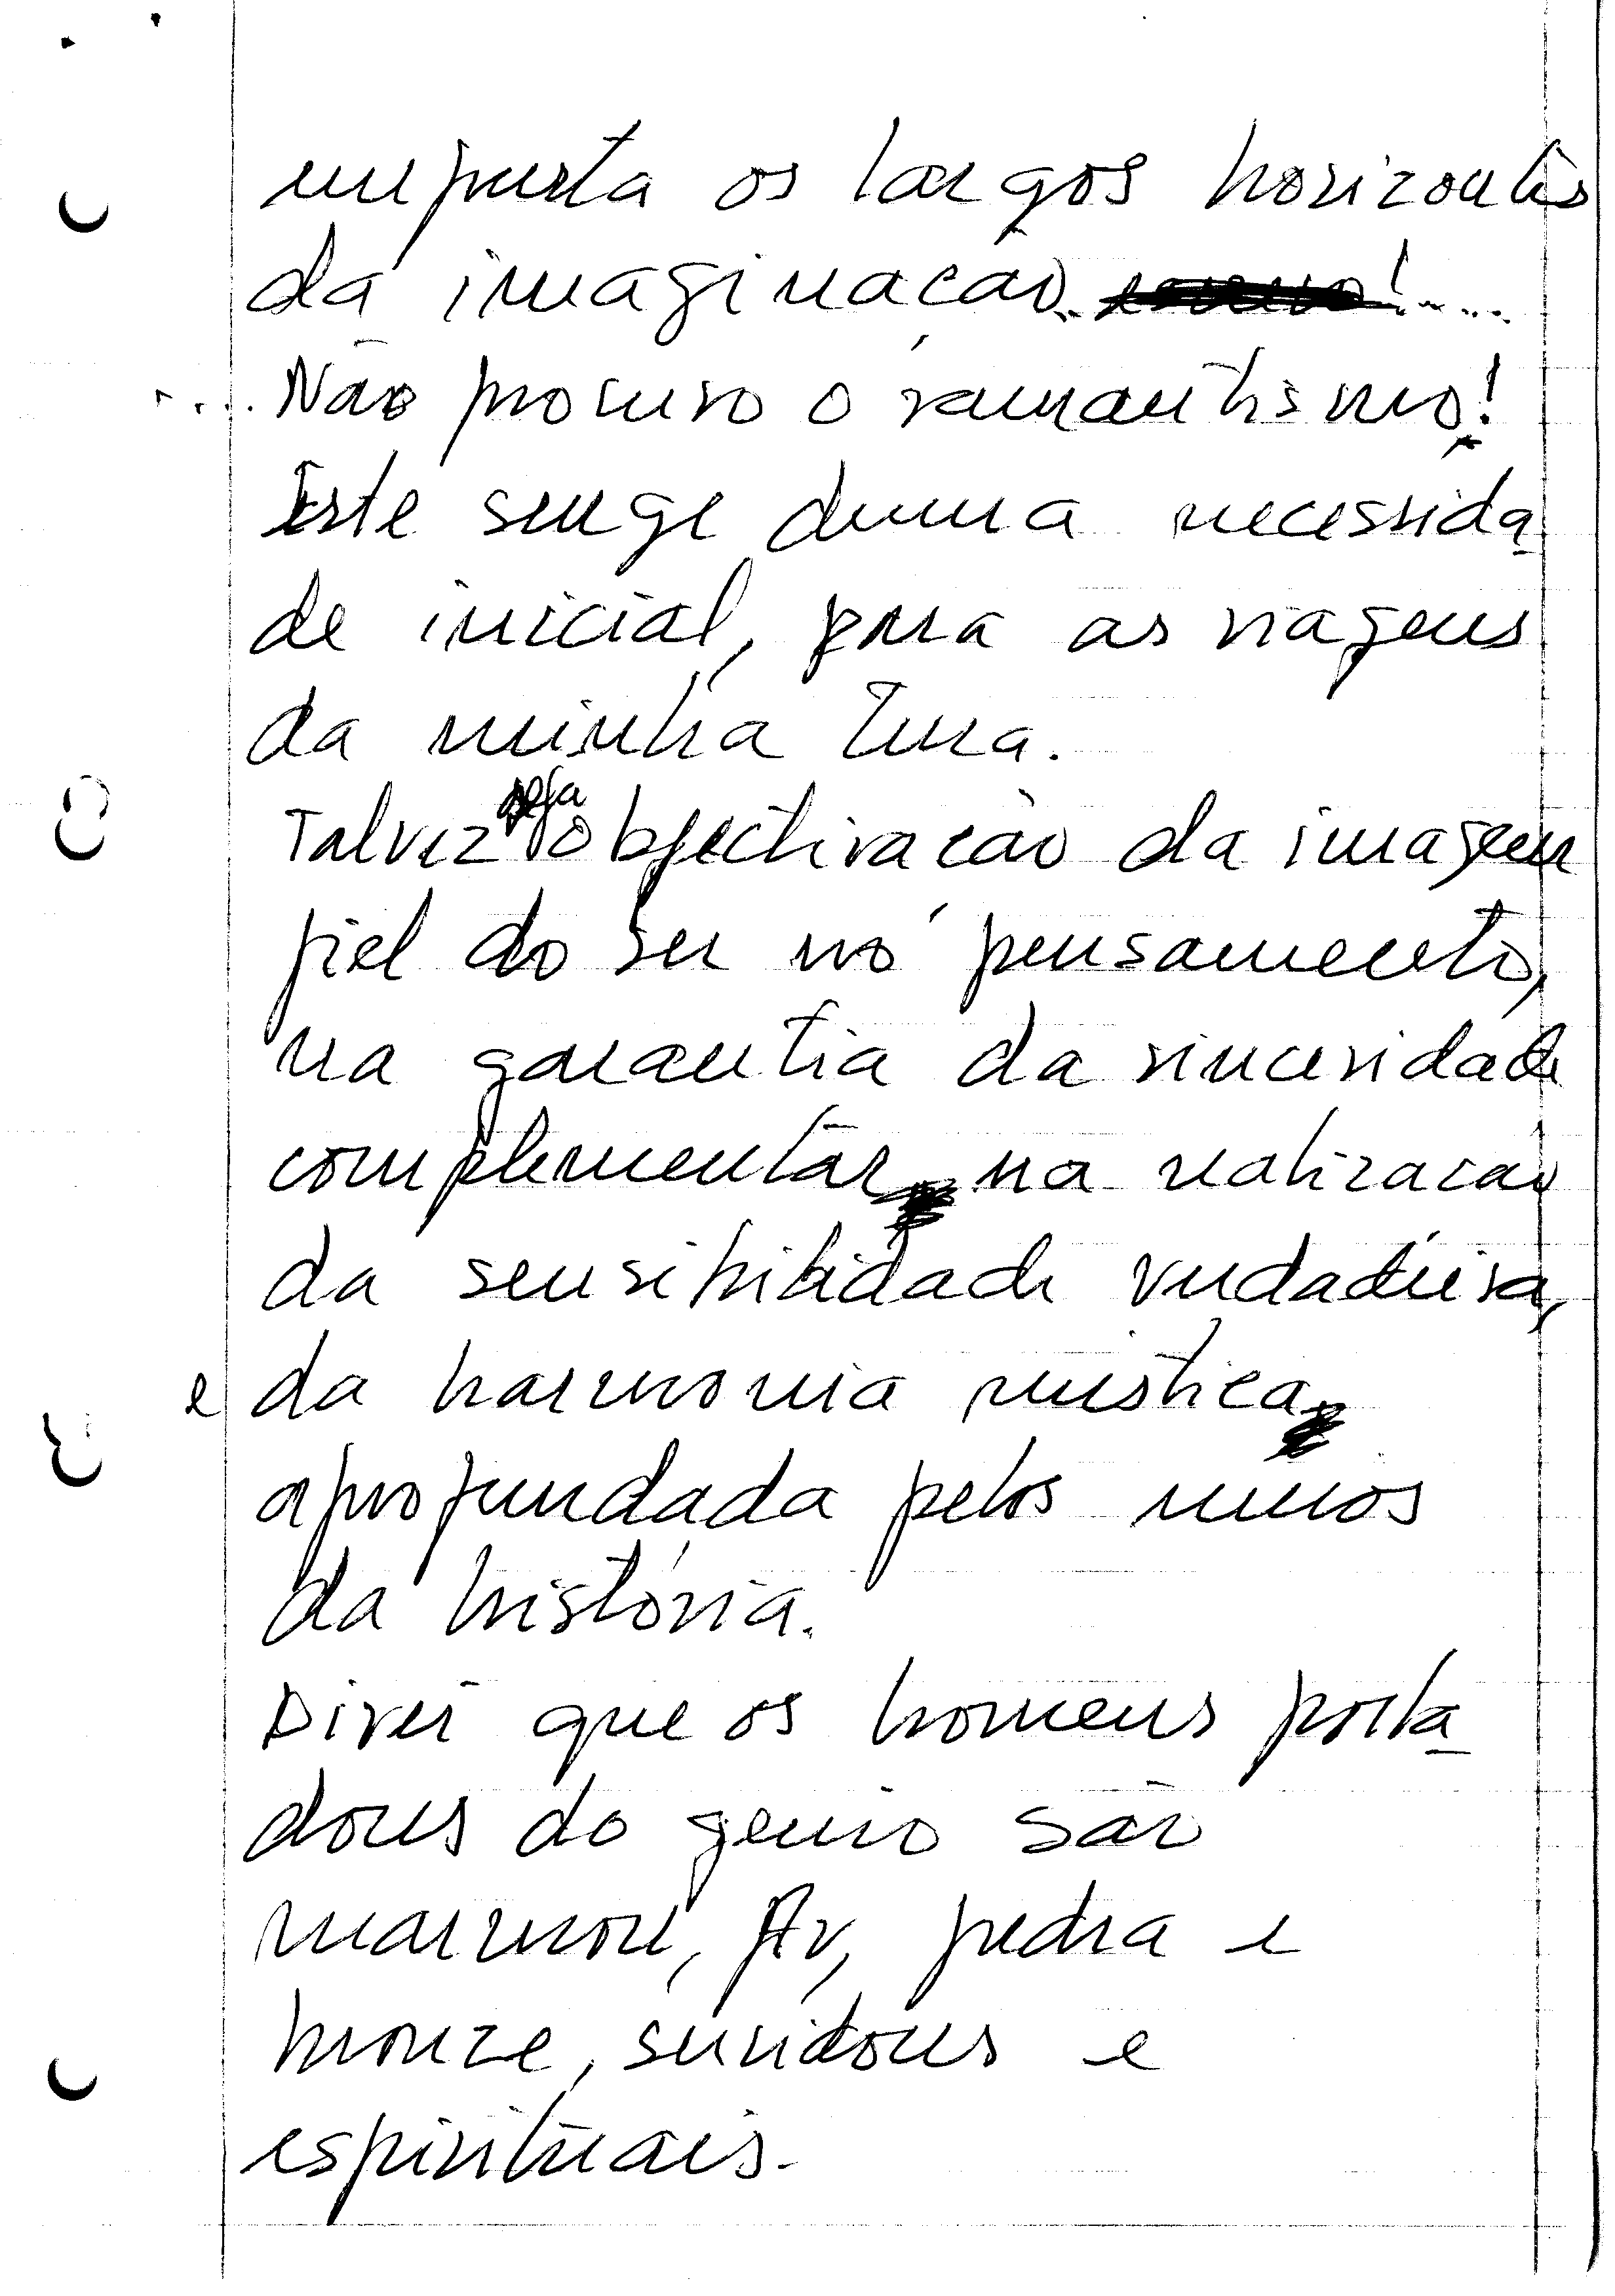 empresta os largos horizontes
da imaginação!....
.... Não procuro o romantismo!
Este surge duma necessida
de inicial, para as viagens
da minha Terra.
Talvez seja objectivação da imagem
fiel do ser no pensamento,
na garantia da sinceridade
complementar na realização
da sensibilidade verdadeira,
e da harmonia mistica
aprofundada pelos
da história.
Direi que os homens porta
dores do genio são
marmore, Ar, pedra e
bronze, servidores e
espirituais.